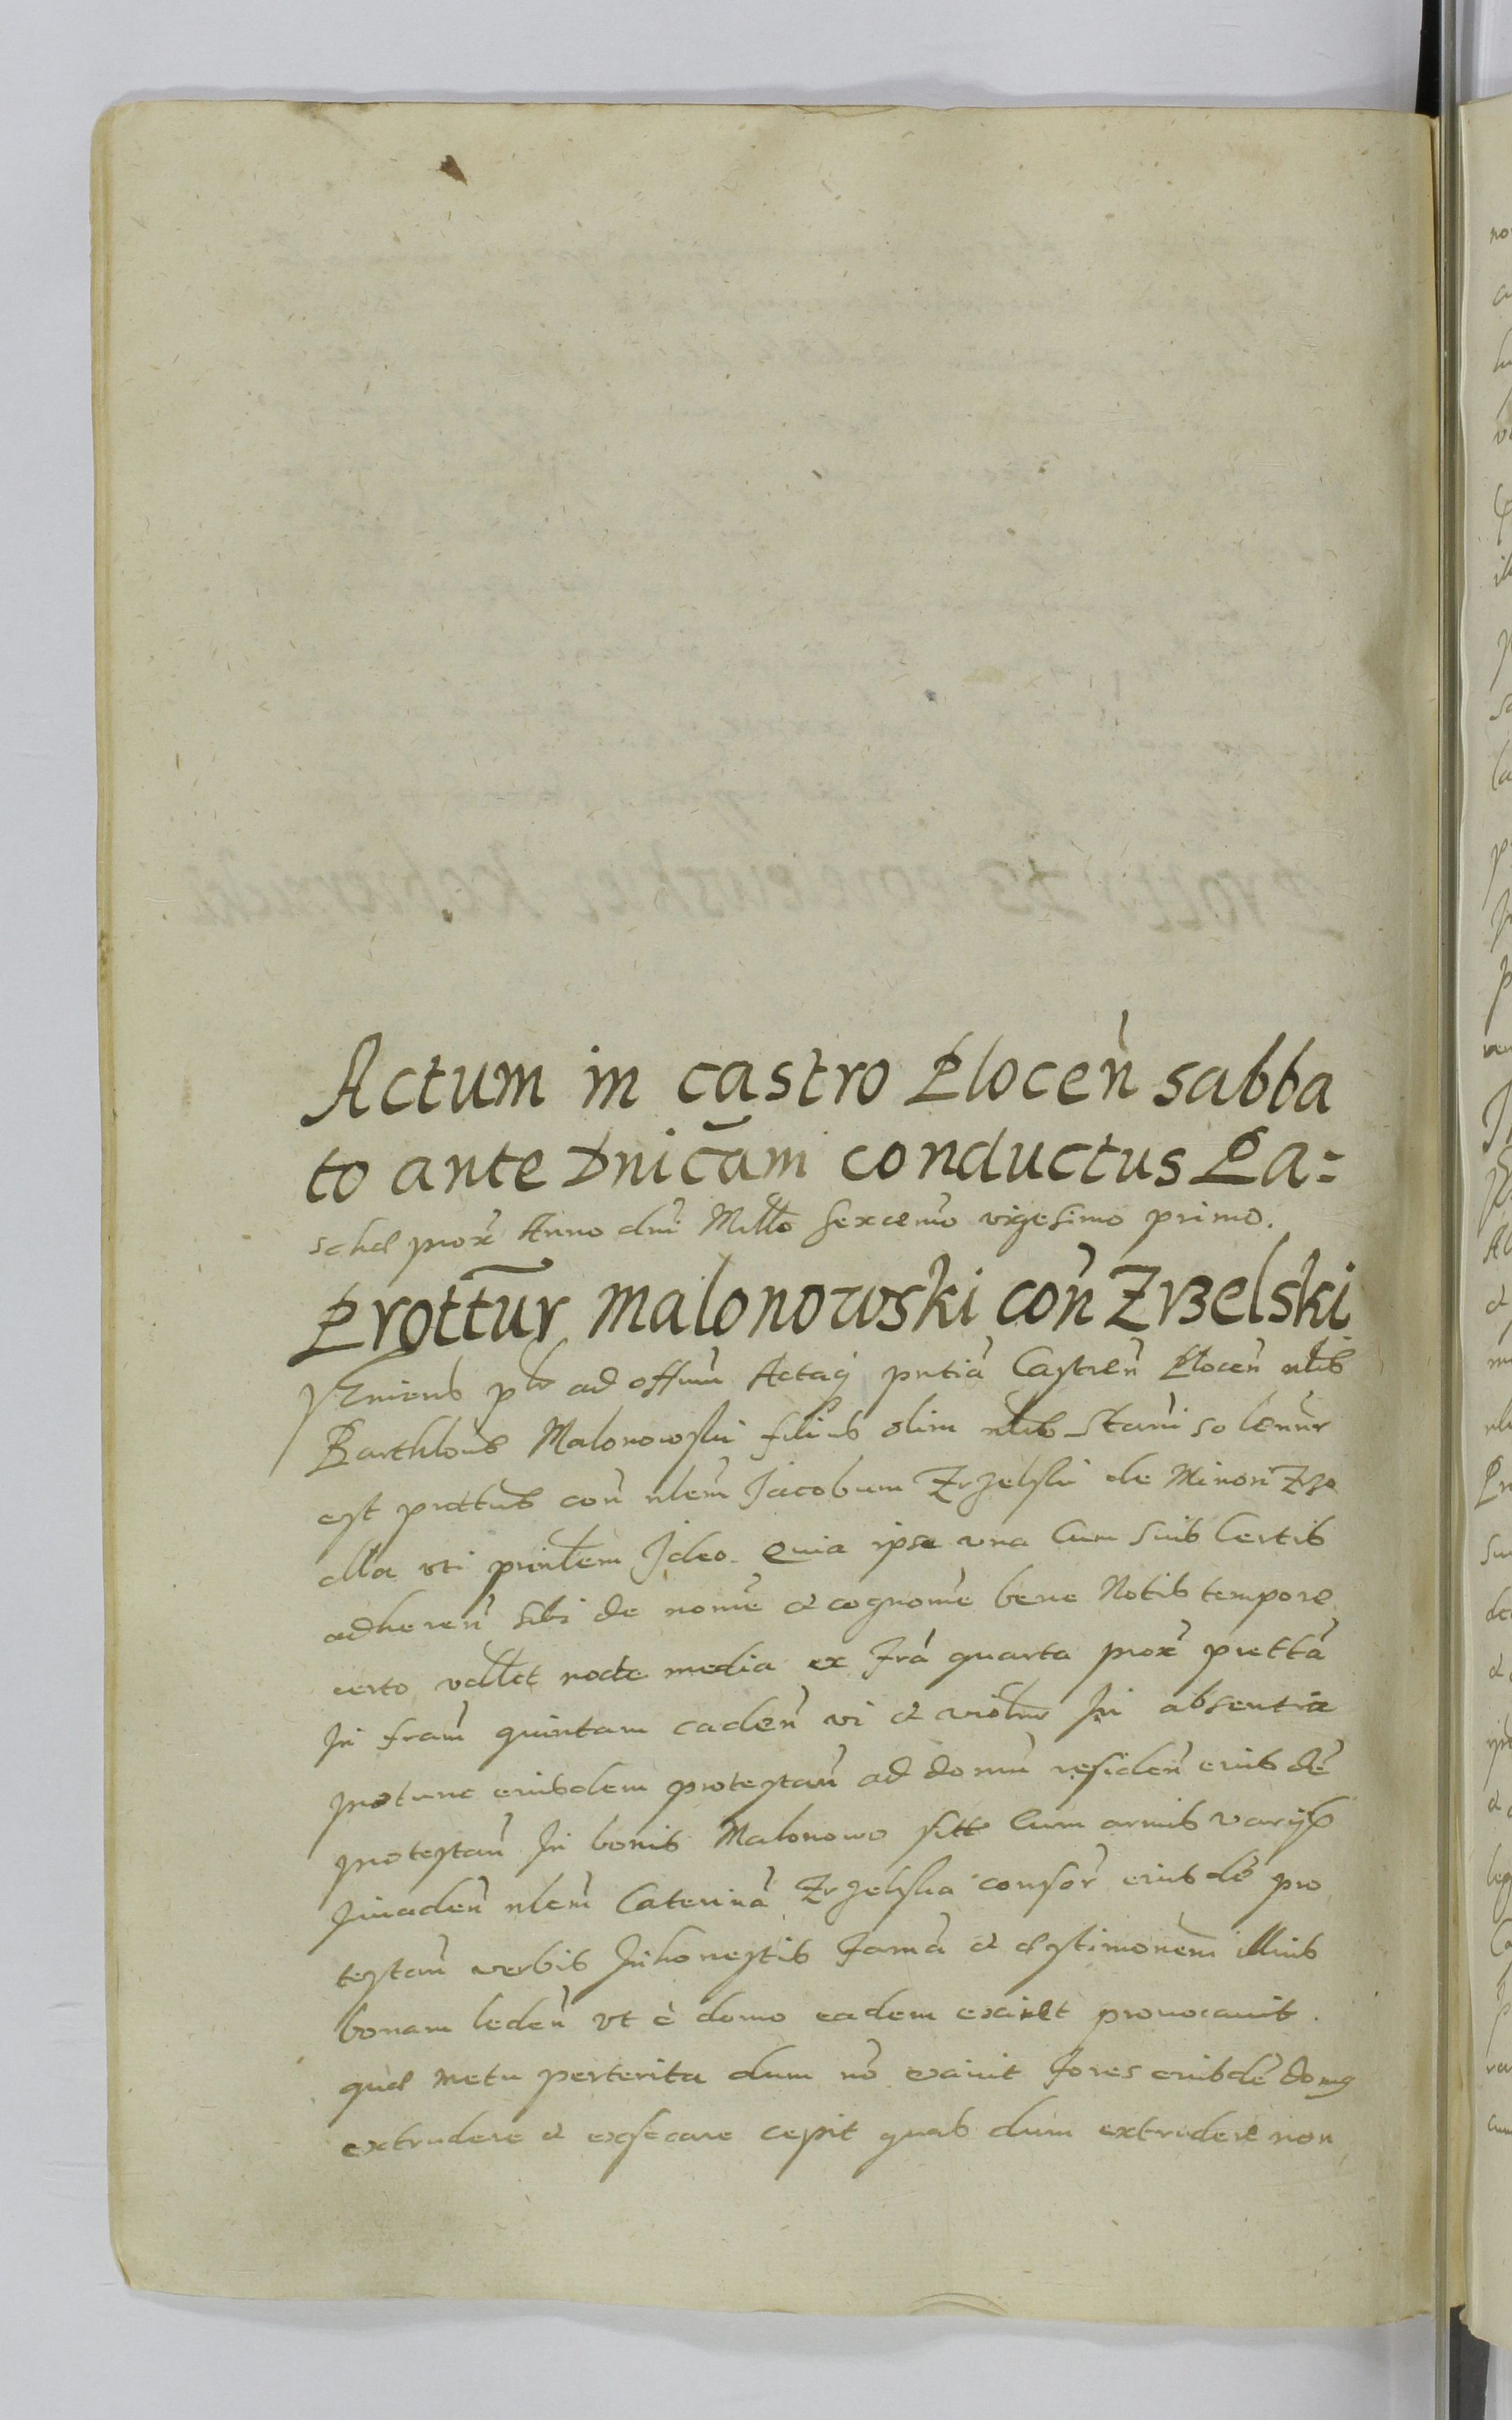 Actum in castro Plocen̄ sabba
to ante Dnicam̄ conductus Pa=
schæ prox̄ Anno dni Millo Sexcenmo vigesimo primo.
Prottur Malonowski con̄ Zrzelski
Veniens pr ad offum Actaq pntia Castren̄ Plocen̄ nlis
Barthlous Malonowski filius olim nlis Stani solennr
est prottus con̄ nlem Jacobum Zrzelski de Minori Zrze
lla uti prinlem Ideo. Quia ipse una Cum suis Certis
adheren̄ sibi de nome & cognome bene Notis tempore
certo vdlet nocte media ex fra quarta prox̄ prettā
In fram quintam caden̄ vi & violnr In absentia
protunc eiusdem protestan̄ ad domū residen̄ eiusdē
protestan̄ In bonis Malonowo sitt Cum armis varys
Invaden̄ nlem Caterinā Zrzelska consor̄ eiusdē pro
testan̄ verbis Inhonestis famā & æstimonem illius
bonam leden̄ ut è domo eadem exiret provocavit.
quæ metu perterita dum nō exivit fores eiusdē domq
extrudere & exsecare cepit quas dum extrudere non